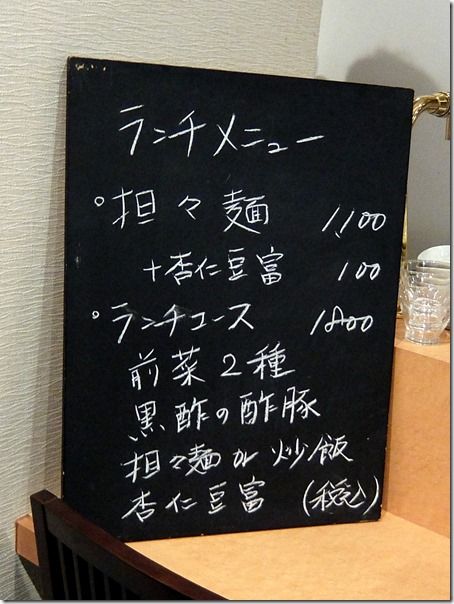 ランチメニュー
○担々麺 1,100
+杏仁豆富 100
○ランチコース 1800
前菜2種
黒酢の酢豚
担々麺 or 炒飯
杏仁豆富 (税込)